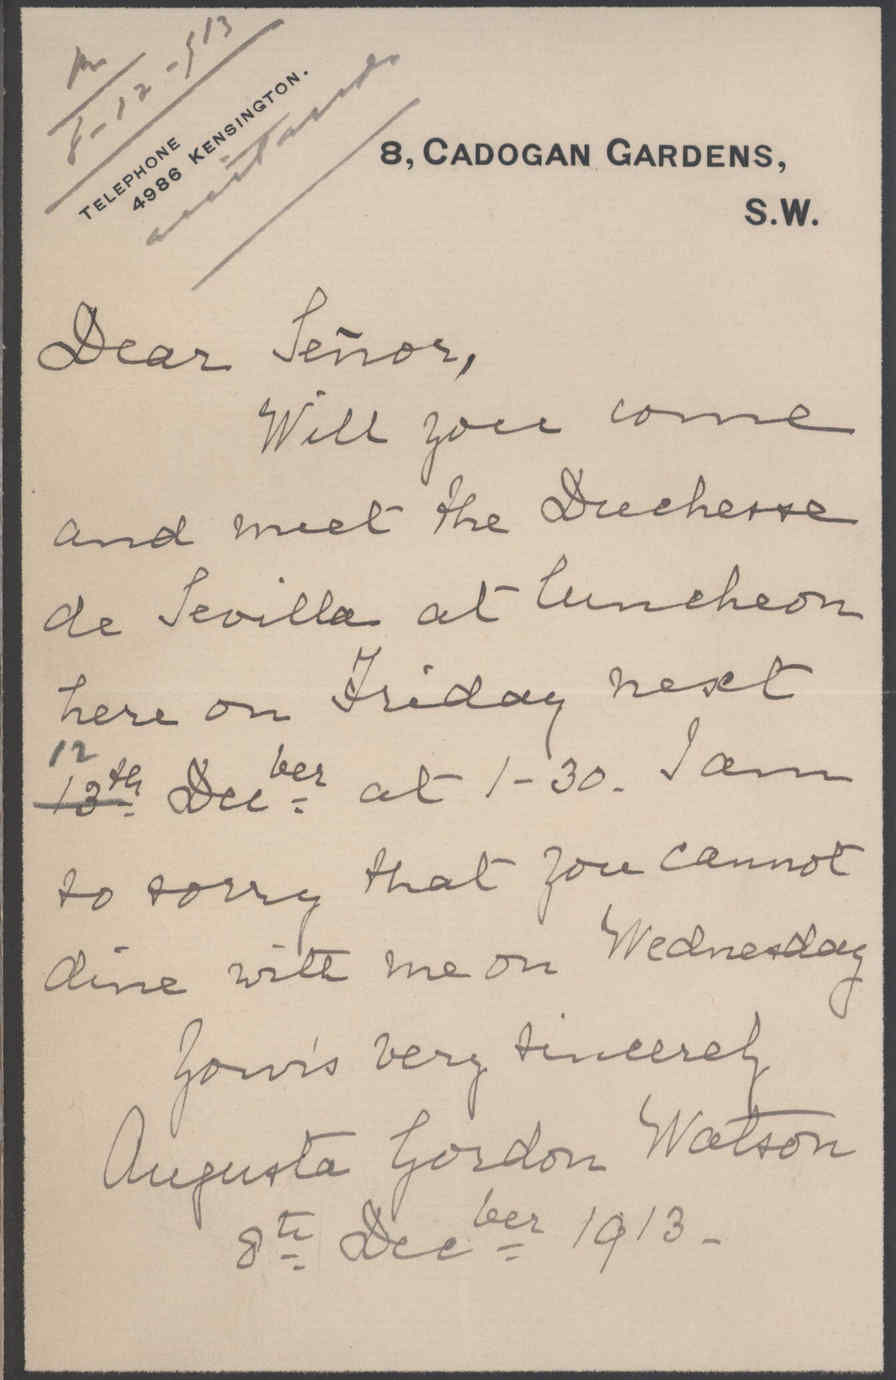 8-12-913
TELEPHONE
4986 KENSINGTON.
8, CADOGAN GARDENS,
S.W.
Dear Señor,
Will you come
and meet the Duchesse
de Sevilla at luncheon
here on Friday next
12
13th Decber at 1-30. I am
so sorry that you cannot
dine with me on Wednesday
Yours very sincerely
Augusta Gordon Watson
8th Decber 1913-